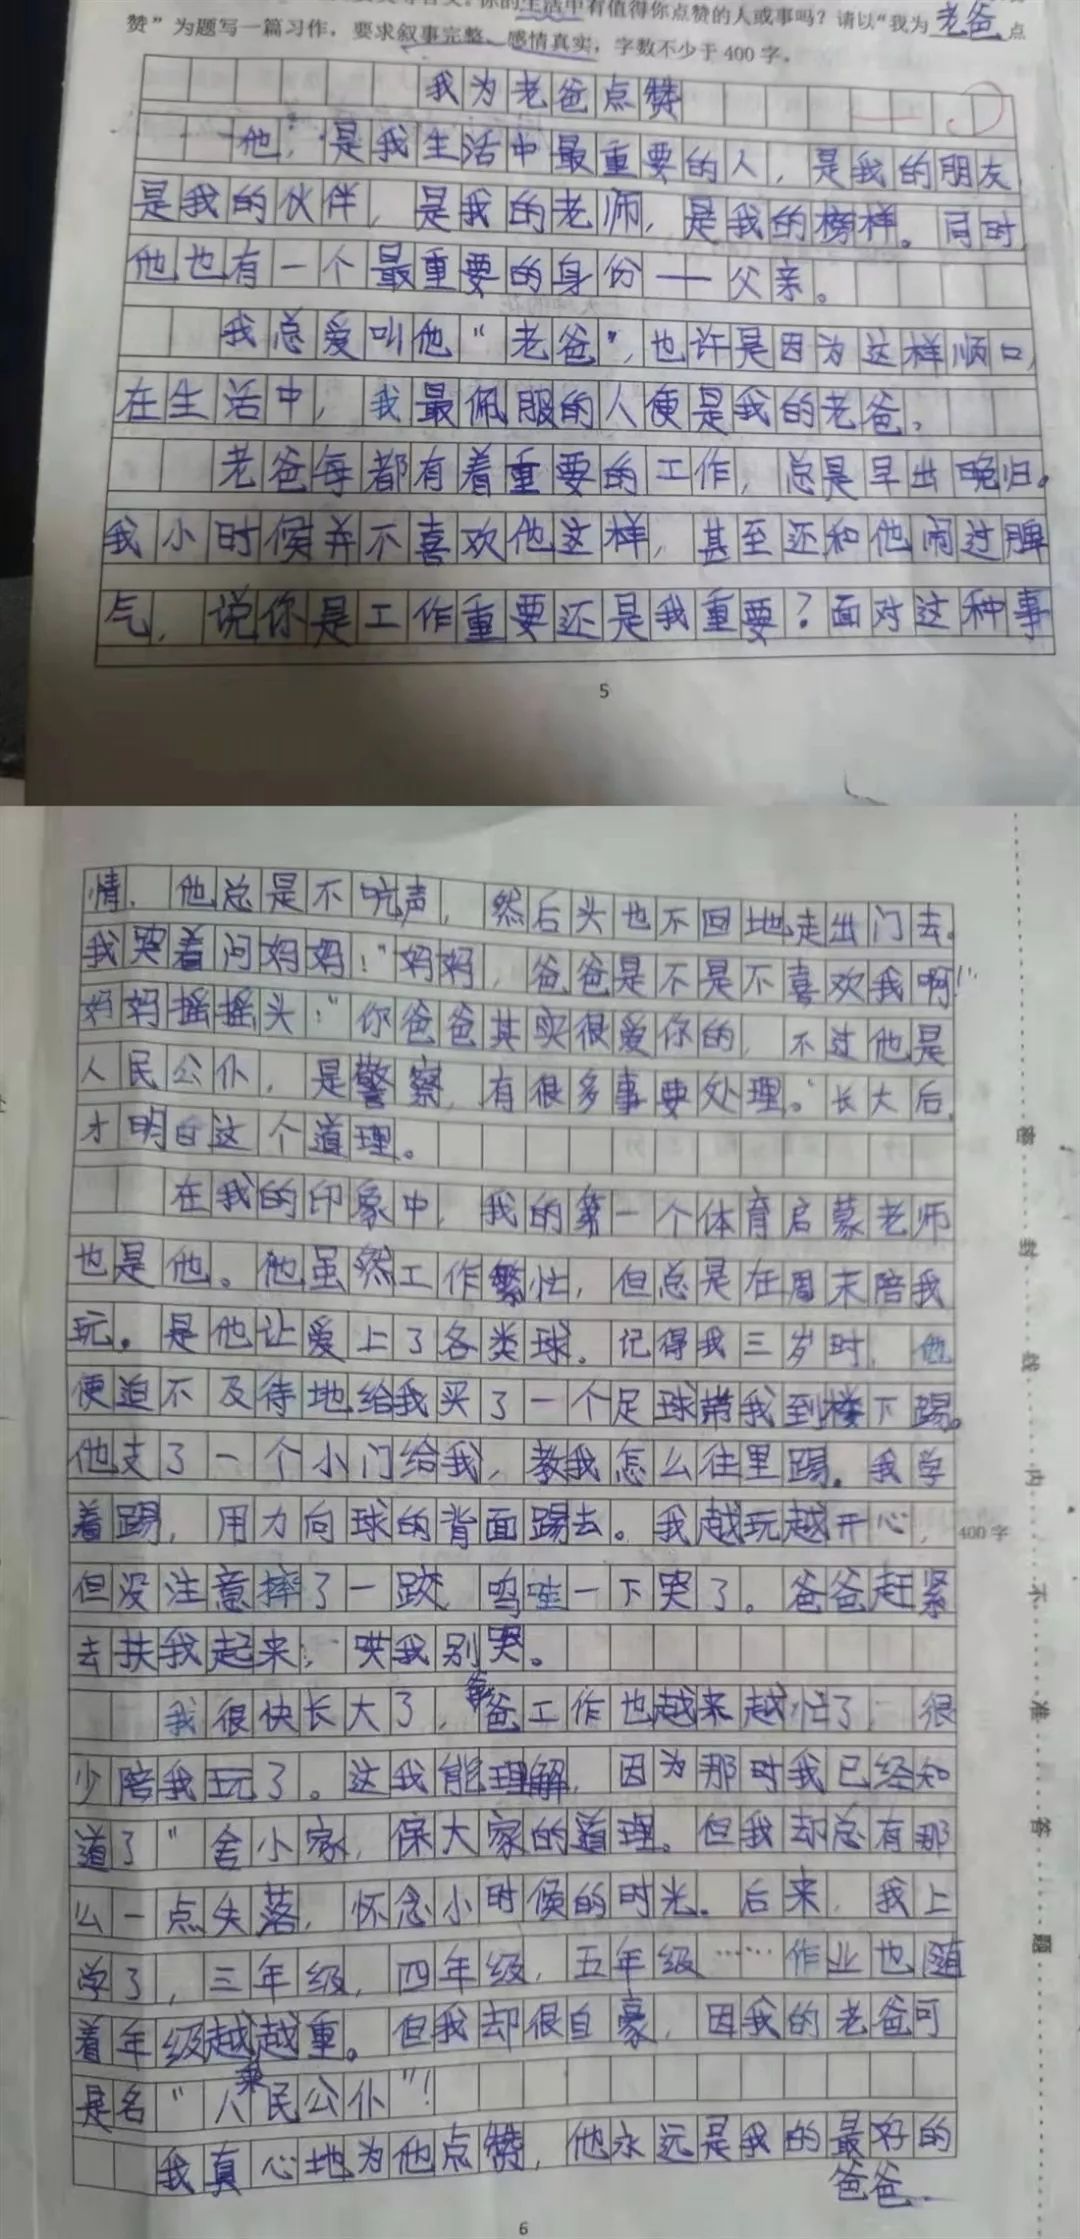 你的生活中有值得你点赞的人或事吗？请以“我为老爸点
赞”为题写一篇习作，要求叙事完整、感情真实，字数不少于400字。
我为老爸点赞
他，是我生活中最重要的人，是我的朋友
是我的伙伴，是我的老师，是我的榜样。同时，
他也有一个最重要的身份——父亲。
我总爱叫他“老爸”，也许是因为这样顺口，
在生活中，我最佩服的人便是我的老爸，
老爸每都有着重要的工作，总是早出晚归。
我小时候并不喜欢他这样，甚至还和他闹过脾
气，说你是工作重要还是我重要？面对这种事
5
情，他总是不吭声，然后头也不回地走出门去。
我哭着问妈妈：“妈妈，爸爸是不是不喜欢我啊！”
妈妈摇摇头：“你爸爸其实很爱你的，不过他是
人民公仆，是警察，有很多事要处理。”长大后，
才明白这个道理。
在我的印象中，我的第一个体育启蒙老师
也是他。他虽然工作繁忙，但总是在周末陪我
玩。是他让爱上了各类球。记得我三岁时，他
便迫不及待地给我买了一个足球带我到楼下踢。
他支了一个小门给我，教我怎么往里踢。我学
着踢，用力向球的背面踢去。我越玩越开心，
400字
但没注意摔了一跤，呜哇一下哭了。爸爸赶紧
去扶我起来，哄我别哭。
我很快长大了，爸爸工作也越来越忙了，很
少陪我玩了。这我能理解，因为那时我已经知
道了“舍小家，保大家的道理。但我却总有那
么一点失落，怀念小时候的时光。后来，我上
学了，三年级，四年级，五年级……作业也随
着年级越来越重。但我却很自豪，因我的老爸可
是名“人民公仆”！
我真心地为他点赞，他永远是我的最好的
爸爸。
6
密封线内不准答题